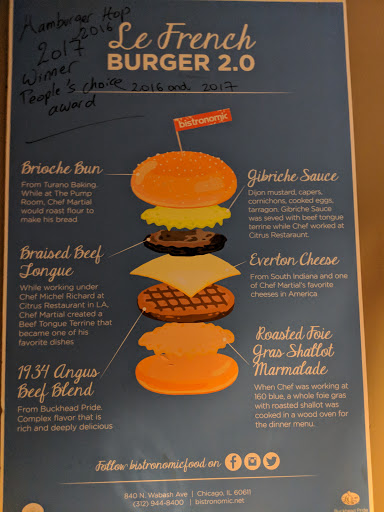 Hamburger Hop
2016
2017
Winner
People's choice 2016 and 2017
award
Le French
BURGER 2.0
bistronomic
Brioche Bun
From Turano Baking.
While at The Pump
Room, Chef Martial
would roast flour to
make his bread
Gibriche Sauce
Dijon mustard, capers,
cornichons, cooked eggs,
tarragon. Gibriche Sauce
was seved with beef tongue
terrine while Chef worked at
Citrus Restaraunt.
Braised Beef
Tongue
While working under
Chef Michel Richard at
Citrus Restaurant in LA,
Chef Martial created a
Beef Tongue Terrine that
became one of his
favorite dishes
Everton Cheese
From South Indiana and one
of Chef Martial's favorite
cheeses in America
1934 Angus
Beef Blend
From Buckhead Pride.
Complex flavor that is
rich and deeply delicious
Roasted Foie
Gras Shallot
Marmalade
When Chef was working at
160 blue, a whole foie gras
with roasted shallot was
cooked in a wood oven for
the dinner menu.
Follow bistronomicfood on
840 N. Wabash Ave | Chicago, IL 60611
(312)-944-8400 | bistronomic.net
Buckhead Pride